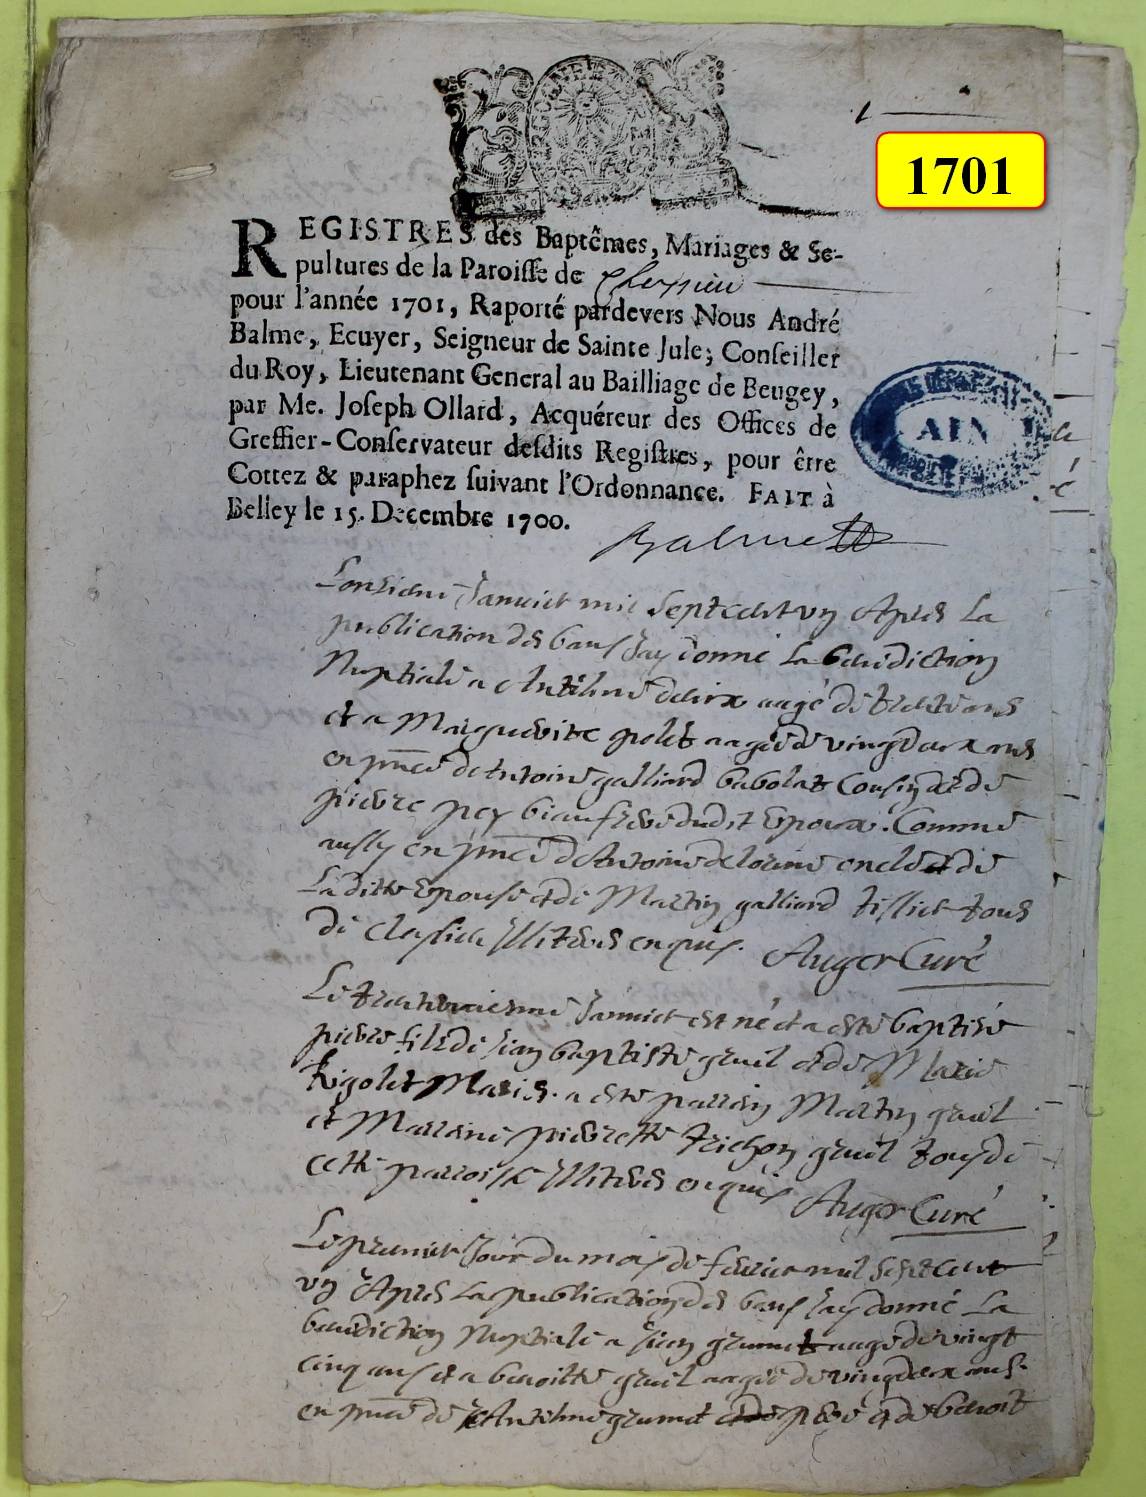 1701
REGISTRES des Baptêmes, Mariages & Se-
pultures de la Paroisse de
pour l'année 1701, Raporté pardevers Nous André
Balme, Ecuyer, Seigneur de Sainte Jule; Conseiller
du Roy, Lieutenant General au Bailliage de Beugey,
par Me. Joseph Ollard, Acquéreur des Offices de
Greffier-Conservateur desdits Registres, pour être
Cottez & paraphez suivant l'Ordonnance. FAIT à
Belley le 15. Decembre 1700.
AIN
Balme
L'onzieme Janvier mil Sept cent un Apres La
publication des bans Jay donné La benediction
Nuptiale a Antelme aagé de trente ans
et a Marguerite polet aagée de vingt deux ans
en pnce de Antoine galliard babolat Cousin et de
pierre pey biaufrere dudit Epoux. Comme
aussy en pnce de Antoine delorme oncle de
La ditte Epouse et de Martin galliard tissier tous
de Illiteres enquis. Auger Curé
Le Janvier est né et a esté baptisé
pierre fils de Jean baptiste gruil et de Marie
Rigolet Mariés. a esté parrein Martin gruil
et Marrene pierrette trichon gruil tous de
cette parroisse Illiteres enquis Auger Curé
Le premier Jour du mois de fevrier mil Sept Cent
un Apres La publication des bans Jay donné La
benediction Nuptiale a Jean grumet aagé de vingt
cinq ans et a benoitte gruil aagée de vingt deux ans.
en pnce de Antelme grumet pere et de benoit